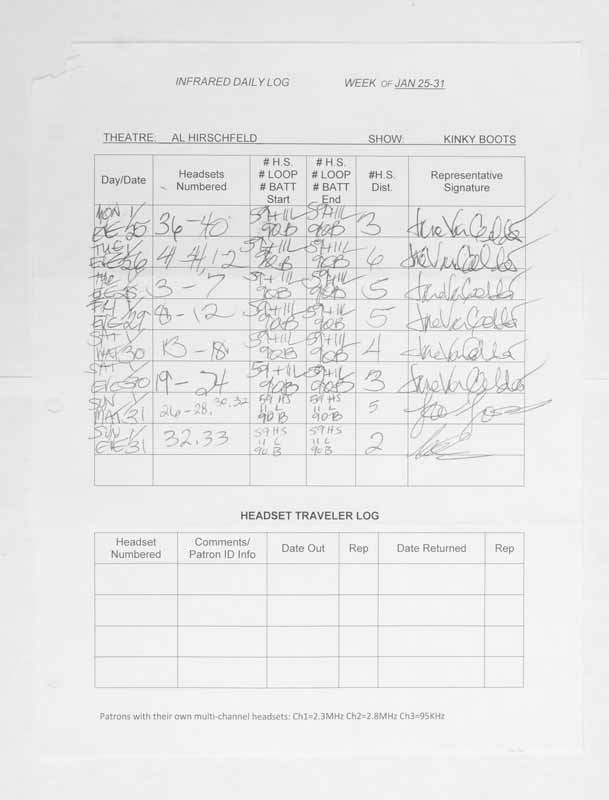 INFRARED DAILY LOG WEEK OF JAN 25-31
THEATRE: AL HIRSCHFELD SHOW: KINKY BOOTS
Day/Date Headsets Numbered # H.S. # LOOP # BATT Start # H.S. # LOOP # BATT End #H.S. Dist. Representative Signature
MON 1/ EVE 25 36-40 59+11L 90B 59+11L 90B 3
TUE 1/ EVE 26 59+11L 90B 59+11L 90B 6
3-7 59+11L 90B 59+11L 90B 5
8-12 59+11L 90B 59+11L 90B 5
SAT 1/ MAT 30 13-18 59+11L 90B 59+11L 90B 4
SAT 1/ EVE 30 19-24 59+11L 90B 59+11L 90B
SUN 1/ MAT 31 26-28, 30, 32 59 HS 11 L 90 B 59 HS 11 L 90 B 5
SUN 1/ EVE 31 32, 33 59 HS 11 L 90 B 59 HS 11 L 90 B 2
HEADSET TRAVELER LOG
Headset Numbered Comments/ Patron ID Info Date Out Rep Date Returned Rep
Patrons with their own multi-channel headsets: Ch1=2.3MHz Ch2=2.8MHz Ch3=95KHz